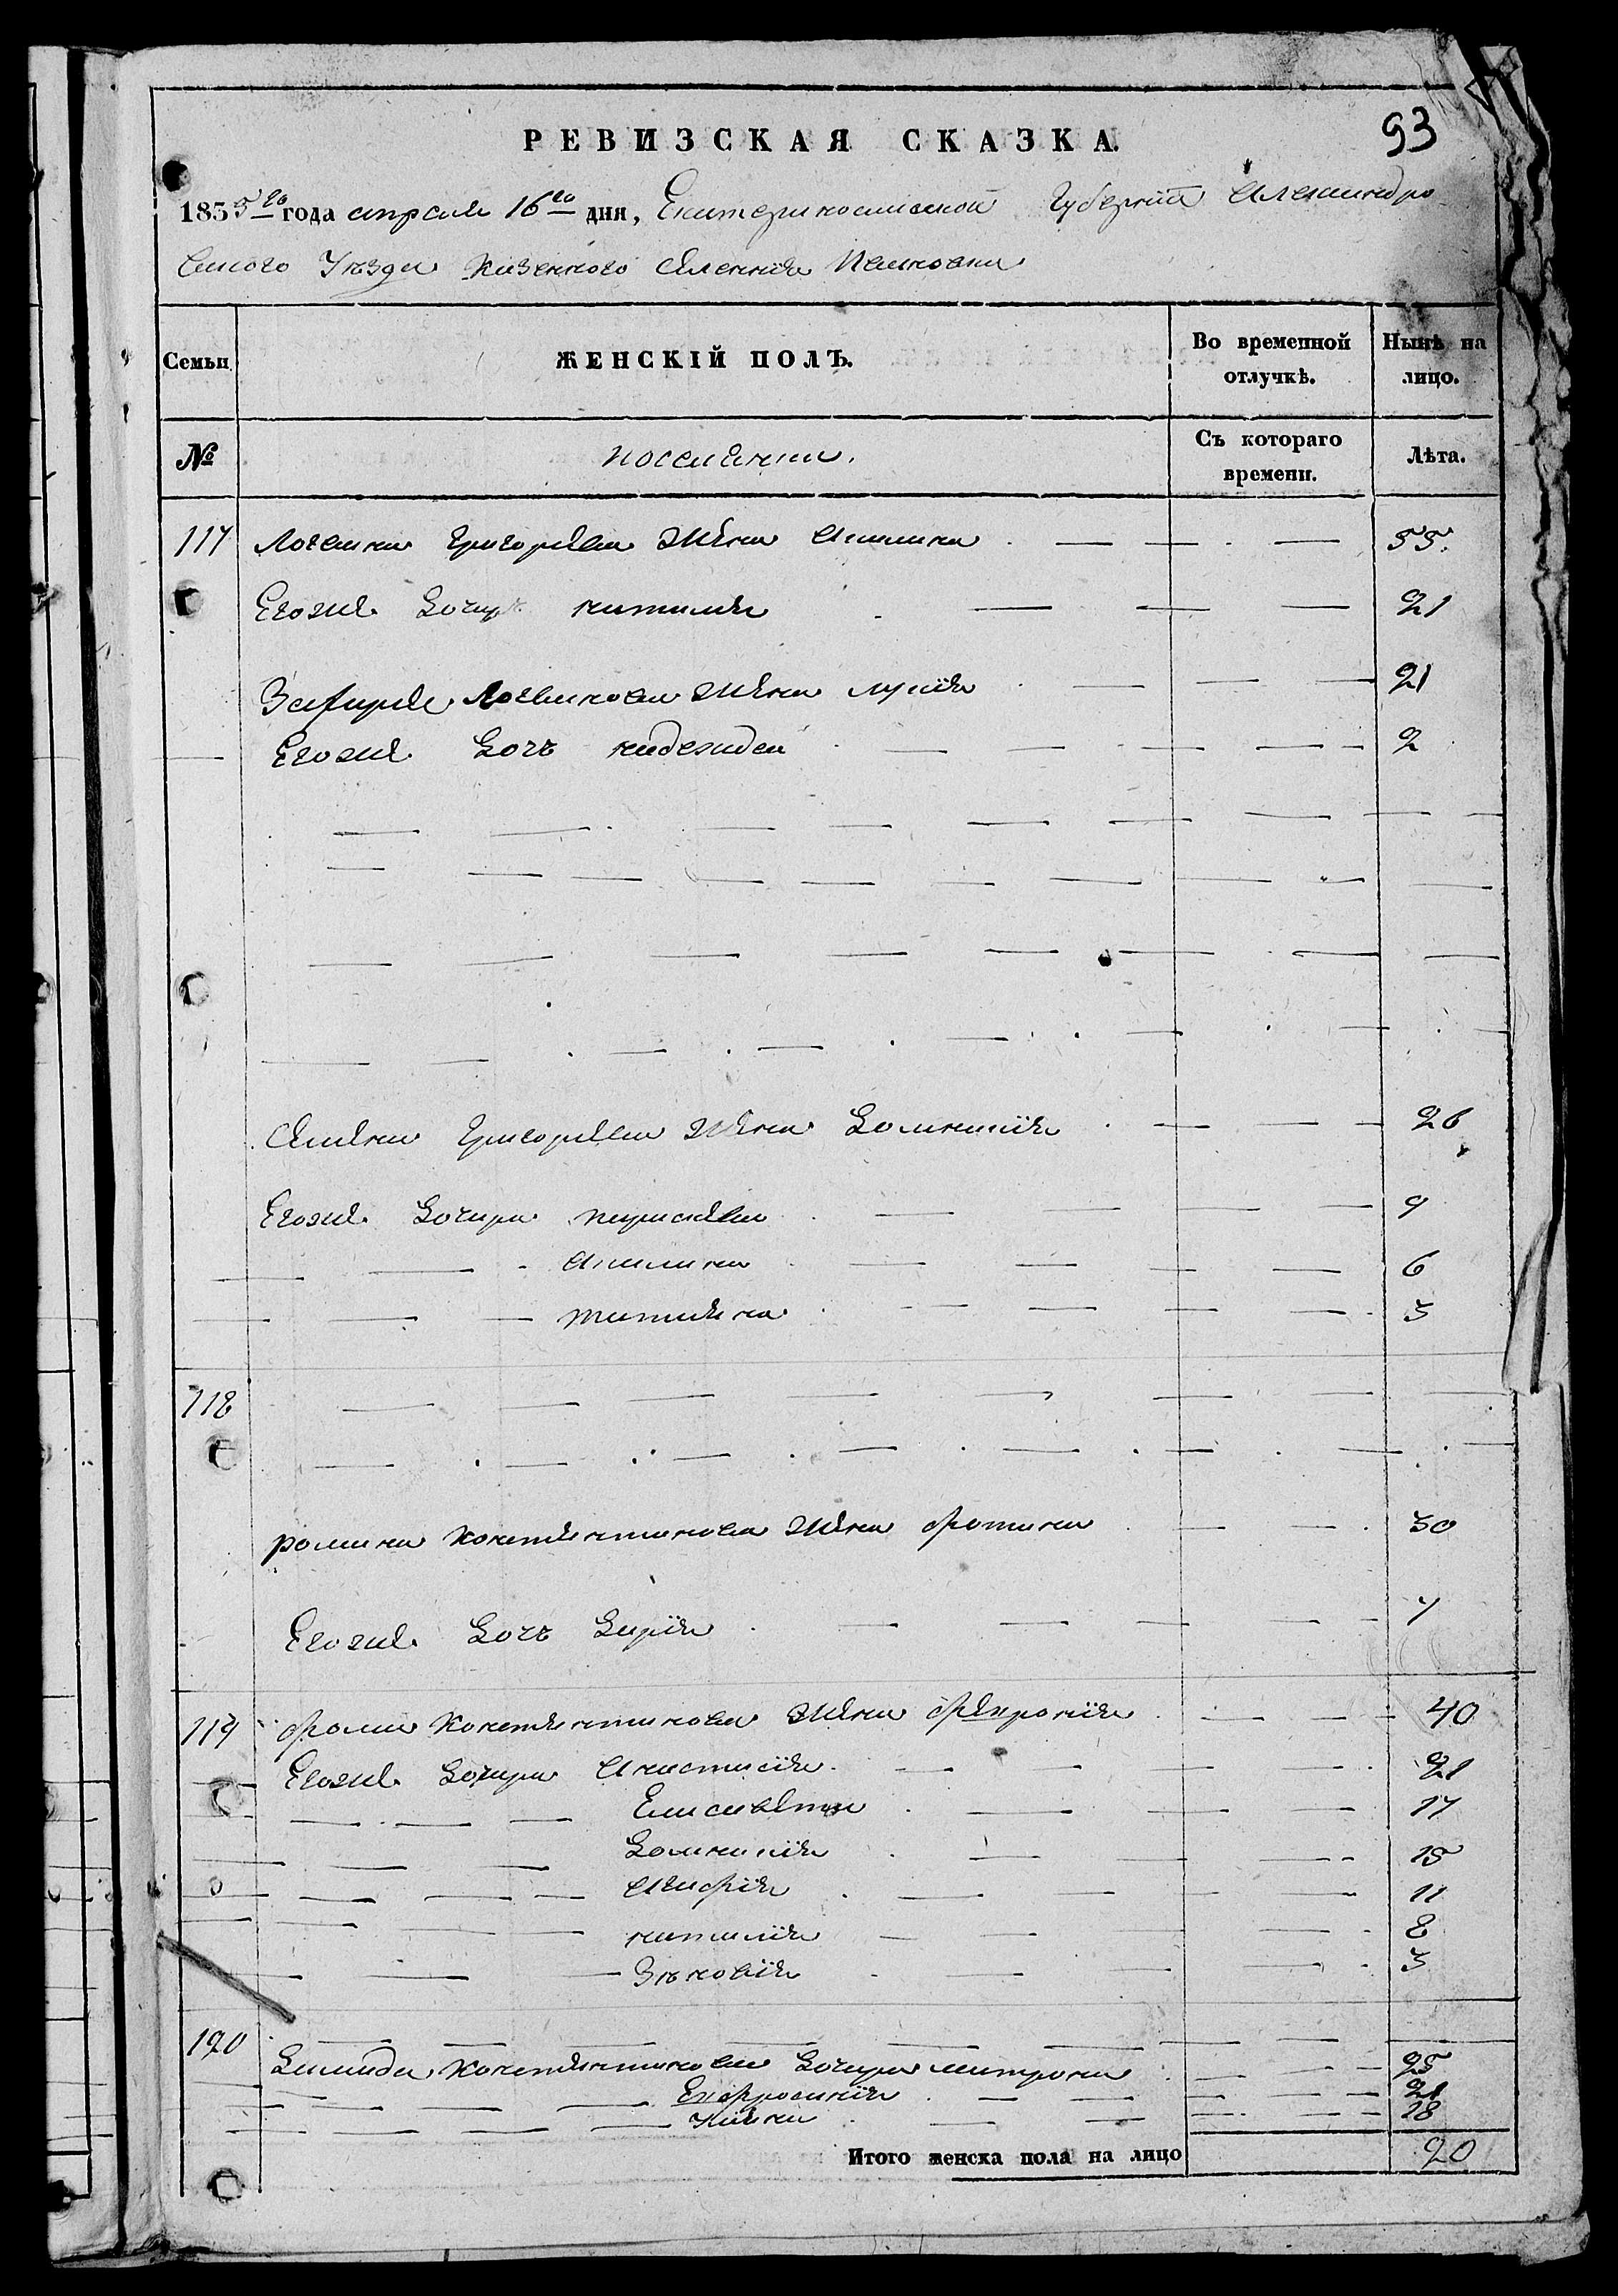 93
РЕВИЗСКАЯ СКАЗКА.
1855го года апреля 16го дня, Екатеринославской Губернии Александро
вского Уезда Казенного Селения
Семьи ЖЕНСКІЙ ПОЛЪ. Во временной отлучкѣ. Нынѣ на лицо.
№ поселянки. Съ котораго времени. Лѣта.
117 Логвина Григорьева жена Акилина 55.
Егоже Дочиръ наталия 21
Логвинова жена лукия 21
Егоже дочь надежда 2
Семена Григорьева жена Домникия 26
Егоже Дочери параскева 9
Акилина 6
татияна 3
118
романа Констянтинова жена фотина 30
Егоже Дочь Дария 7
119 фомы Констянтинова жена феврония 40
Егоже дочери Анастасия 21
Елисавета 17
Домникия 15
Агафия 11
наталия 8
Зѣновия 3
120
Демида Констянтинова Дочери матрона 25
Евфросиния 21
18
Итого женска пола на лицо 20